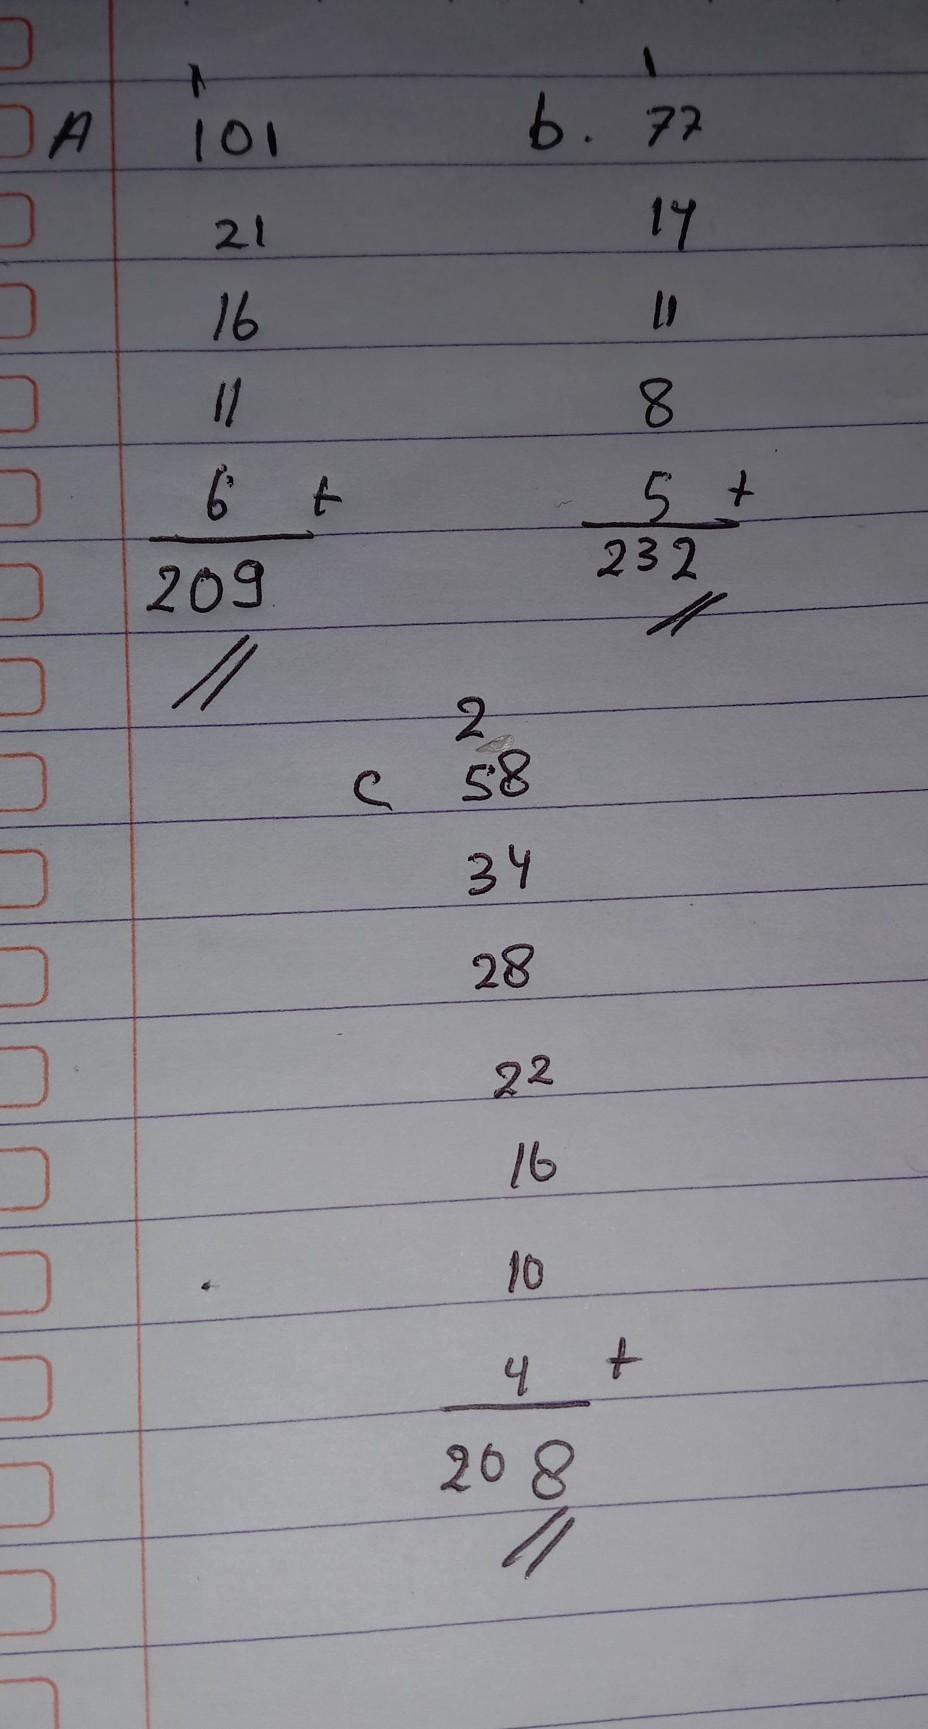 1 1
A 101 b. 77
21 14
16 11
11 8
6 + 5 +
209 232
2
c 58
34
28
22
16
10
4 +
208